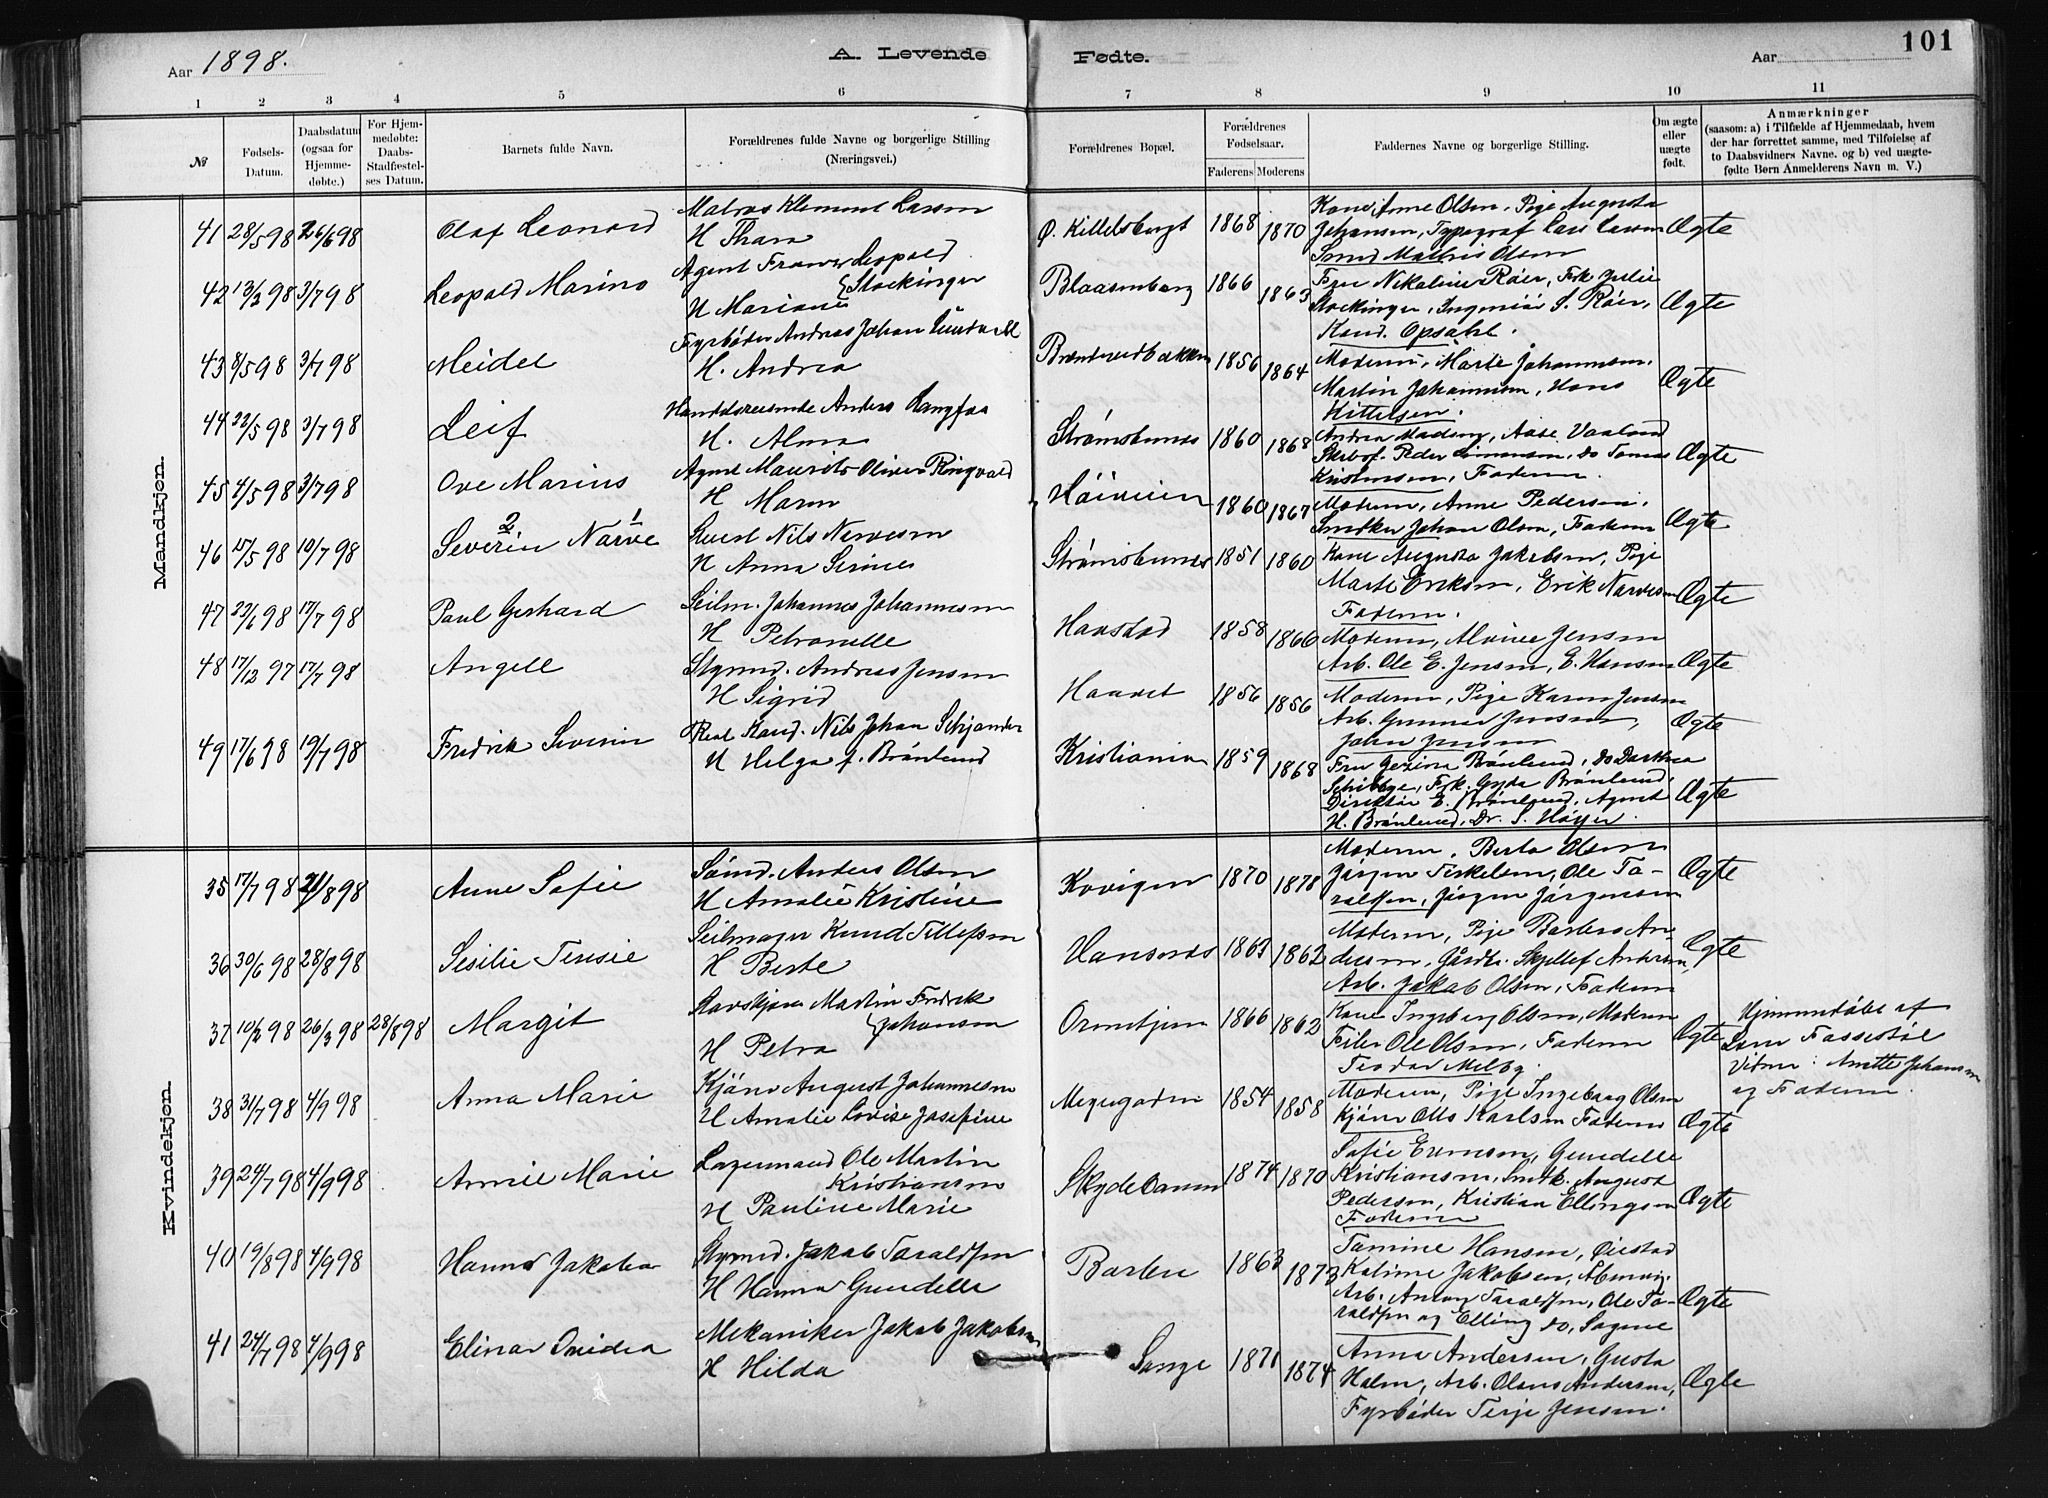 Aar 1898.
A. Levende
Fødte.
Aar
101
1 2 3 4 5 6 7 8 9 10 11
№
Fødsels-
Datum.
Daabsdatum
(ogsaa for
Hjemme-
døbte.)
For Hjem-
medøbte:
Daabs-
Stadfæstel-
ses Datum.
Barnets fulde Navn.
Forældrenes fulde Navne og borgerlige Stilling
(Næringsvei.)
Forældrenes Bopæl.
Forældrenes
Fødselsaar.
Faderens Moderens
Faddernes Navne og borgerlige Stilling.
Om ægte
eller
uægte
født.
Anmærkninger
(saasom: a) i Tilfælde af Hjemmedaab, hvem
der har forrettet samme, med Tilføielse af
to Daabsvidners Navne. og b) ved uægte-
fødte Børn Anmelderens Navn m. V.)
Mandkjøn.
41 28/5 98 26/6 98 Olaf Leonard
Matros Klement Larsen
H Thara
Ø. Kittelsbugt 1868 1870
Kone Anne Olsen, Pige Augusta
Johansen, Typograf Lars Larsen
Smed Mathis Olsen
Ægte
42 13/2 98 3/7 98 Leopold Marino
Agent Franz Leopold
Stockinger
H Mariane
Blaasenborg 1866 1863
Fru Nikoline Røer, Frk Julie
Stockinger, Ingeniør S. Røer,
Kand. Opsahl.
Ægte
43 8/5 98 3/7 98 Meidel
Fyrbøder Andreas Johan Lundvald
H. Andrea
1856 1864
Moderen, Marte Johannesen,
Martin Johannesen, Hans
Kittelsen.
Ægte
44 22/5 98 3/7 98 Leif
Handelsreisende Anders Langfos
H. Alma
Strømsbunes 1860 1868
Andrea Madsen, Aase Vaaland
Skibsf. Peder Simonsen, do Tomas
Kristensen, Faderen.
Ægte
45 4/5 98 3/7 98 Ove Marius
Agent Maurits Oliver Ringvold
H Maren
Høiveien 1860 1867
Moderen, Anne Pedersen,
Snedker Johan Olsen, Faderen
Ægte
46 17/5 98 10/7 98 Severin 2 Narve 1
Nils Narvesen
H Anna Serine
Strømsbunes 1851 1860
Kone Augusta Jakobsen, Pige
Marte Eriksen, Erik Narvesen
Faderen.
Ægte
47 22/6 98 17/7 98 Paul Gerhard
Seilm. Johannes Johannesen
H Petronelle
Havstad 1858 1866
Moderen, Alvine Jensen
Arb. Ole E. Jensen, E. Hansen
Ægte
48 17/12 97 17/7 98 Angell
Styrmd. Andreas Jensen
H Sigrid
Haavet 1856 1856
Moderen, Pige Karen Jensen
Arb. Gunner Jensen,
John Jensen
Ægte
49 17/6 98 19/7 98 Fredrik Severin
Real Kand. Nils Johan Schjander
H Helga f. Brønlund
Kristiania 1859 1868
Fru Gezina Brønlund, do Dorthea
Schibbye, Frk. Gyda Brønlund,
Direktør E. Brønlund, Agent
H. Brønlund, Dr. S. Høyer.
Ægte
Kvindekjøn.
35 17/7 98 21/8 98 Anne Sofie
Sømd. Anders Olsen
H Amalie Kristine
Kovigen 1870 1878
Moderen, Berta Olsen
Jørgen Terkelsen, Ole Ta-
raldsen, Jørgen Jørgensen
Ægte
36 30/6 98 28/8 98 Sesilie Tensie
Seilmager Knud Tellefsen
H Berte
Hansnes 1863 1862
Moderen, Pige Barbro An-
dersen, Gårdbr. Skjellef Andersen,
Arb. Jakob Olsen, Faderen
Ægte
37 10/2 98 26/3 98 28/8 98 Margit
Havskjører Martin Fredrik
Johansen
H Petra
Ormetjern 1866 1862
Kone Ingeborg Olsen, Moderen
Filer Ole Olsen, Faderen
Teodor Melby.
Ægte
Hjemmedøbt af
Lars Fossestøl
Vidner: Anette Johansen
og Faderen.
38 31/7 98 4/9 98 Anna Marie
Kjørev August Johannesen
H Amalie Lovise Josefine
Myregaden 1854 1858
Moderen, Pige Ingeborg Olsen
Kjører Otto Karlsen Faderen
Ægte
39 24/7 98 4/9 98 Annie Marie
Lagermand Ole Martin
Kristiansen
H Pauline Marie
Skydebanen 1874 1870
Sofie Evensen, Gundelle
Kristiansen, Smk. August
Pedersen, Kristian Ellingsen
Faderen
Ægte
40 19/8 98 4/9 98 Hanna Jakoba
Styrmd. Jakob Taraldsen
H Hanna Gundelle
Barbu 1863 1873
Tomine Hansen, Øiestad
Kaline Jakobsen,
Arb. Anton Taraldsen, Ole Ta-
raldsen og Elling do, Sagene
Ægte
41 24/7 98 4/9 98 Elinar Ovidea
Mekaniker Jakob Jakobsen
H Hilda
Songe 1871 1874
Anna Andersen, Gusta
Holm, Arb. Olaus Andersen,
Fyrbøder Terje Jensen.
Ægte